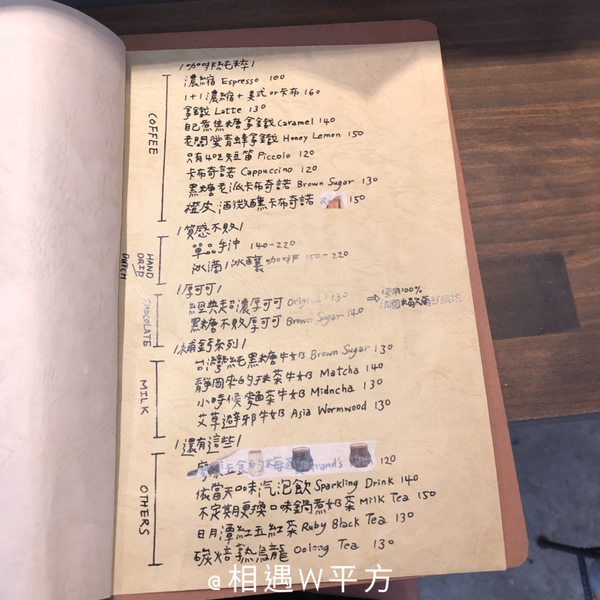 COFFEE
/咖啡純粹/
濃縮 Espresso 100
1+1濃縮+美式or卡布 160
拿鐵 Latte 130
自己煮焦糖拿鐵 Caramel 140
老闆愛青蜂拿鐵 Honey Lemon 150
只有4oz短笛 Piccolo 120
卡布奇諾 Cappuccino 120
黑糖老派卡布奇諾 Brown Sugar 130
橙皮酒微醺卡布奇諾 150
HAND DRIP
DUTCH
/質感不敗/
單品手沖 140-220
冰滴/冰釀咖啡 150-220
CHOCOLATE
/厚可可/
經典超濃厚可可 Original 130
黑糖不敗厚可可 Brown Sugar 140
⇒使用100%
MILK
/補鈣系列/
台灣純黑糖牛奶 Brown Sugar 130
靜岡來的抹茶牛奶 Matcha 140
小時候麵茶牛奶 Midncha 130
艾草避邪牛奶 Asia Wormwood 130
OTHERS
/還有這些/
的梅 Grand's 120
依當天口味汽泡飲 Sparkling Drink 140
不定期更換口味鍋煮奶茶 Milk Tea 150
日月潭紅玉紅茶 Ruby Black Tea 130
碳焙熟烏龍 Oolong Tea 130
@相遇W平方